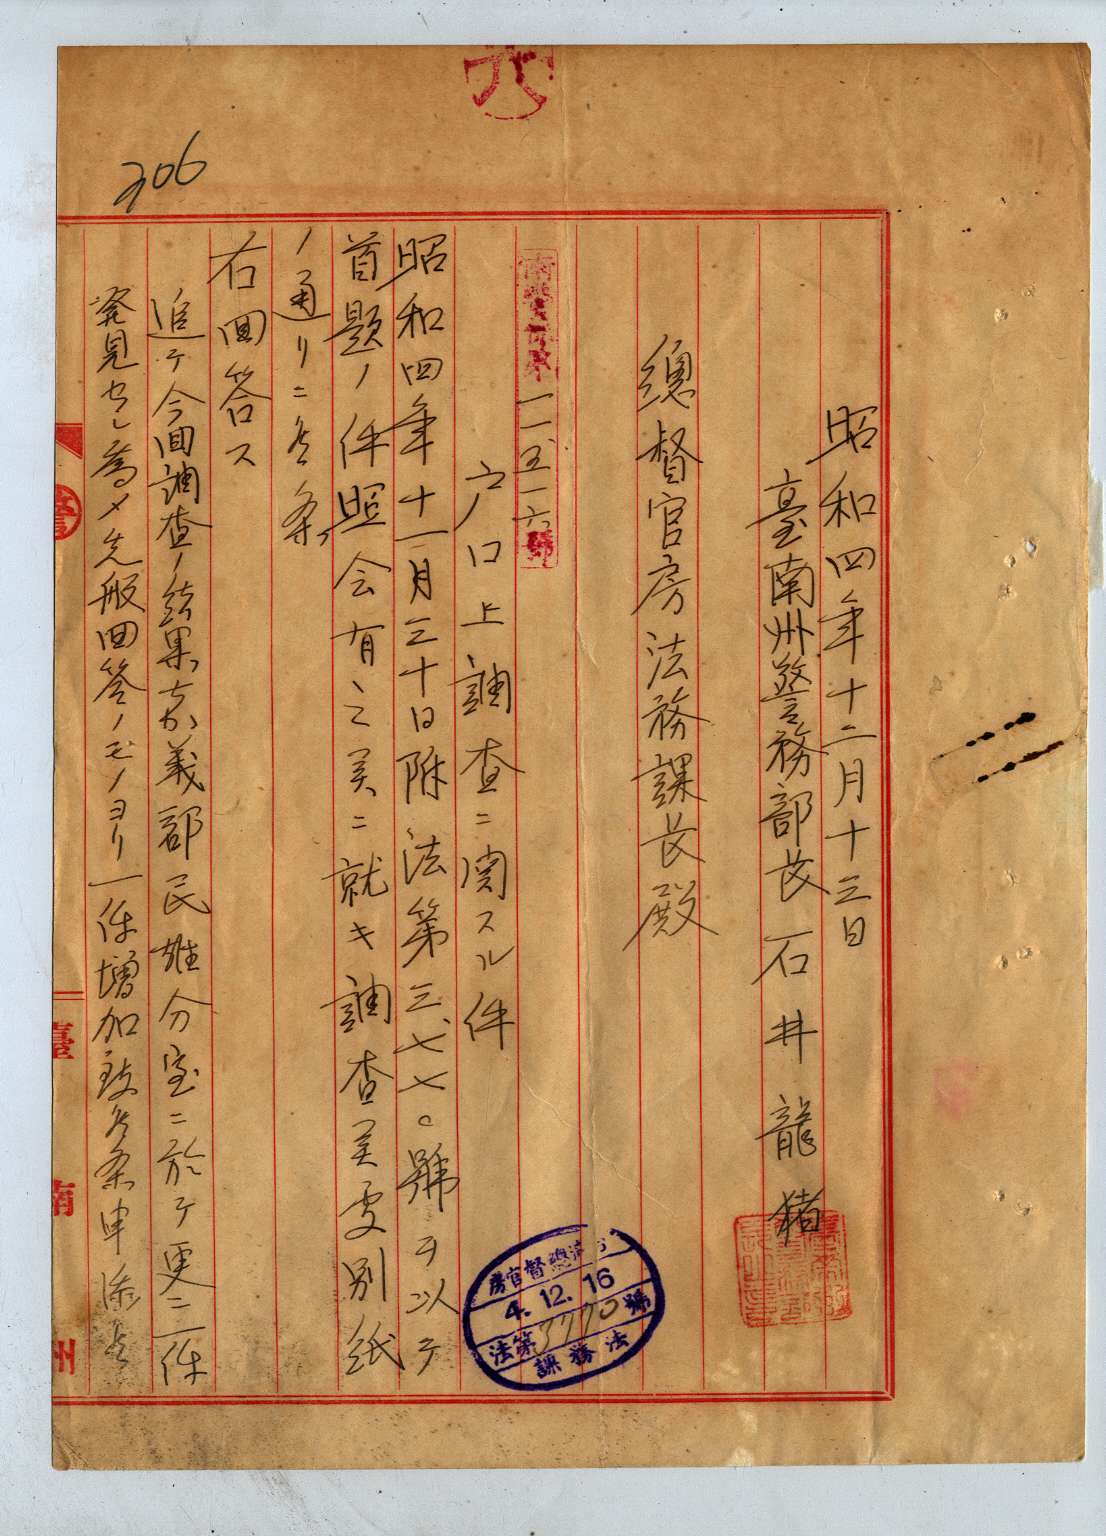 206
昭和四年十二月十三日
臺南州警務部長 石井龍猪
總督官房法務課長殿
一一五一六號
戸口上調査ニ関スル件
昭和四年十一月三十日附法第三七七〇號ヲ以テ
首題ノ件照会有之候ニ就キ調査候処別紙
ノ通リニ候条
右回答ス
追テ今回調査ノ結果嘉義郡民雄分室ニ於テ更ニ一件
発見セシ為メ先般回答ノモノヨリ一件増加致候条申添候
總督官房
4.12.16
法第3770號
法務課
臺南州